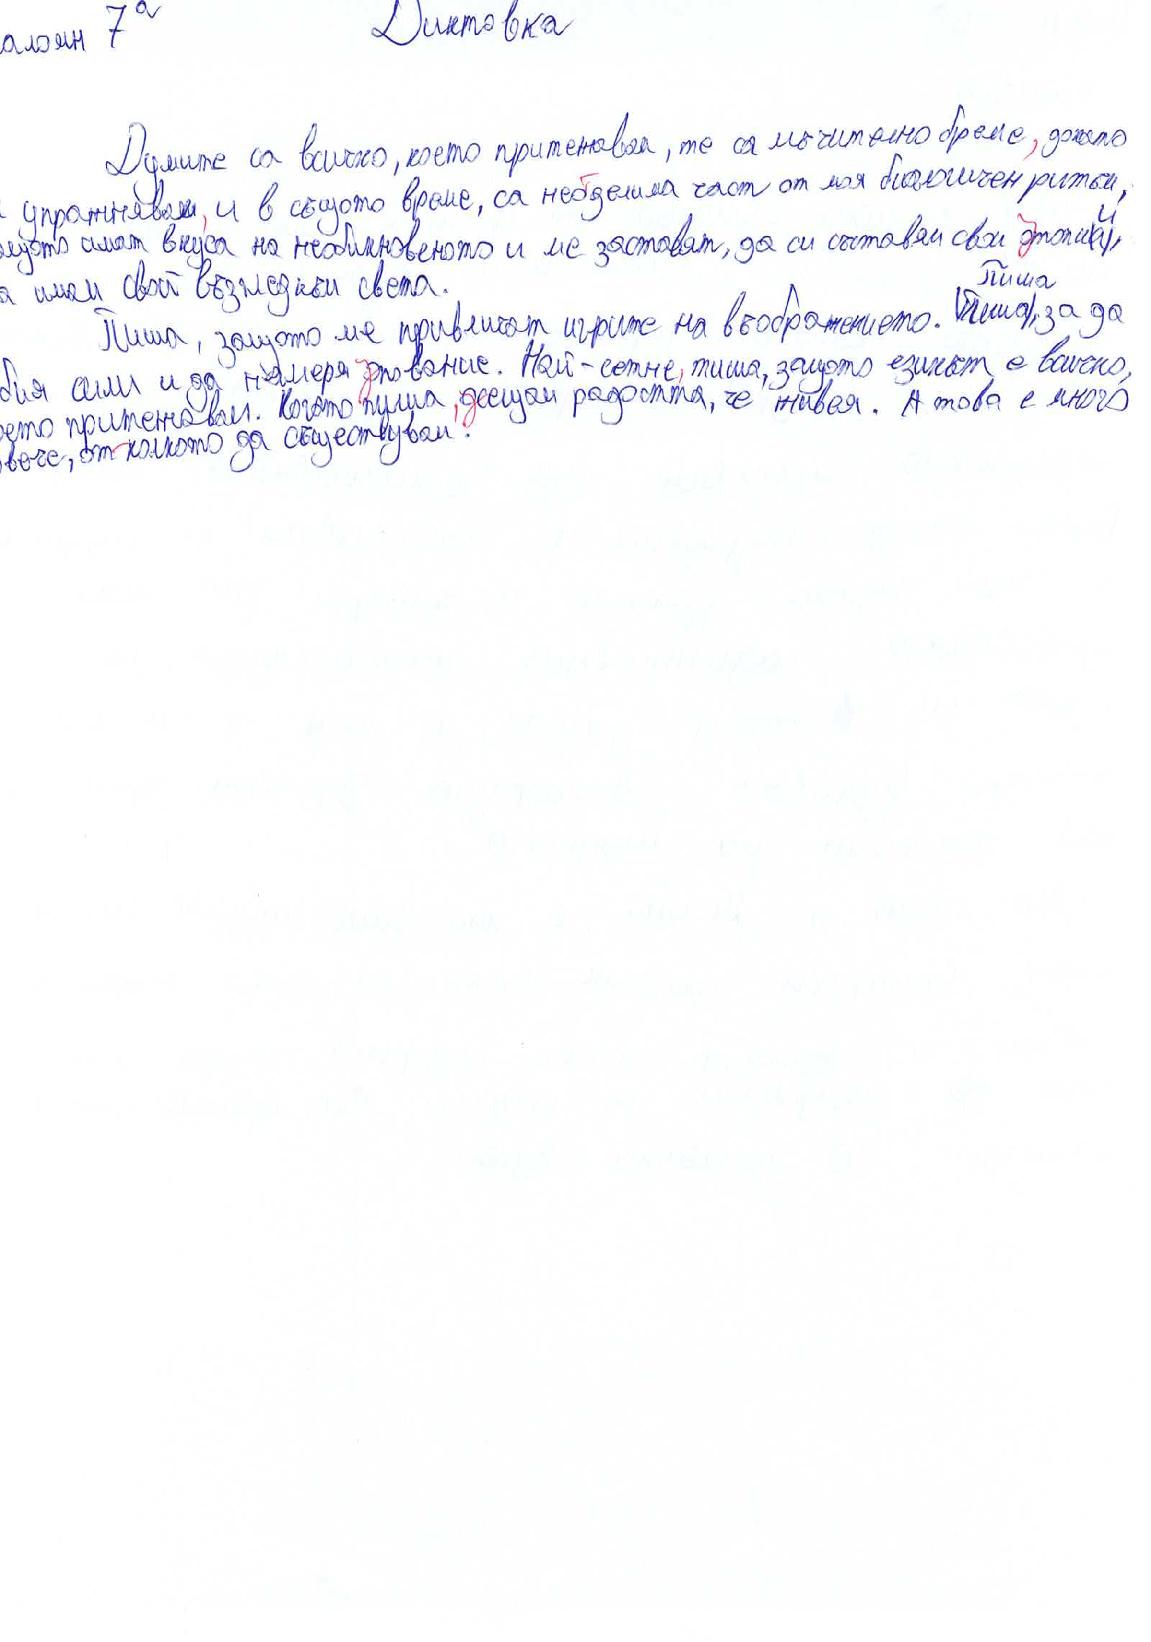 алоян 7а Диктовка
Думите са всичко, което притежавам, те са мъчително бреме, докато
упражнявам, и в същото време, са необделима част от моя биологичен ритъм,
имат вкуса на необикновеното и ме заставят, да си съставям свои утопии,
а имам свой възглед към света.
Пиша
Пиша, защото ме привличат игрите на въображението. (Пиша), за да
бия сили и да намеря упование. Най-сетне, пиша, защото езикът е всичко,
оето притежавам. Когато пиша, усещам радостта, че живея. А това е много
вече, отколкото да съществувам.